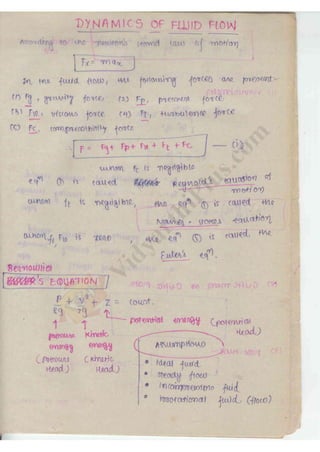 DYNAMICS OF FLUID FLOW
According to the Newton's second law of motion
Fx = max
In the fluid flow, the following forces are present-
(1) Fg, gravity force (2) Fp, pressure force
(3) Fv, viscous force (4) Ft, turbulence force
(5) Fc, compressibility force
F = Fg + Fp + Fv + Ft + Fc — (i)
when Fc is negligible
eqn ① is called Reynold's equation of motion
when Ft is negligible, the eqn ① is called the
Navier-stokes equation
when Fv is zero, the eqn ① is called, the
Euler's eqn.
Bernoullis
EULER'S EQUATION
P/ρg + v²/2g + z = const.
potential energy (potential head)
pressure energy (pressure head)
kinetic energy (kinetic head)
Assumptions
• Ideal fluid
• Steady flow
• Incompressible fluid
• Irrotational fluid (flow)